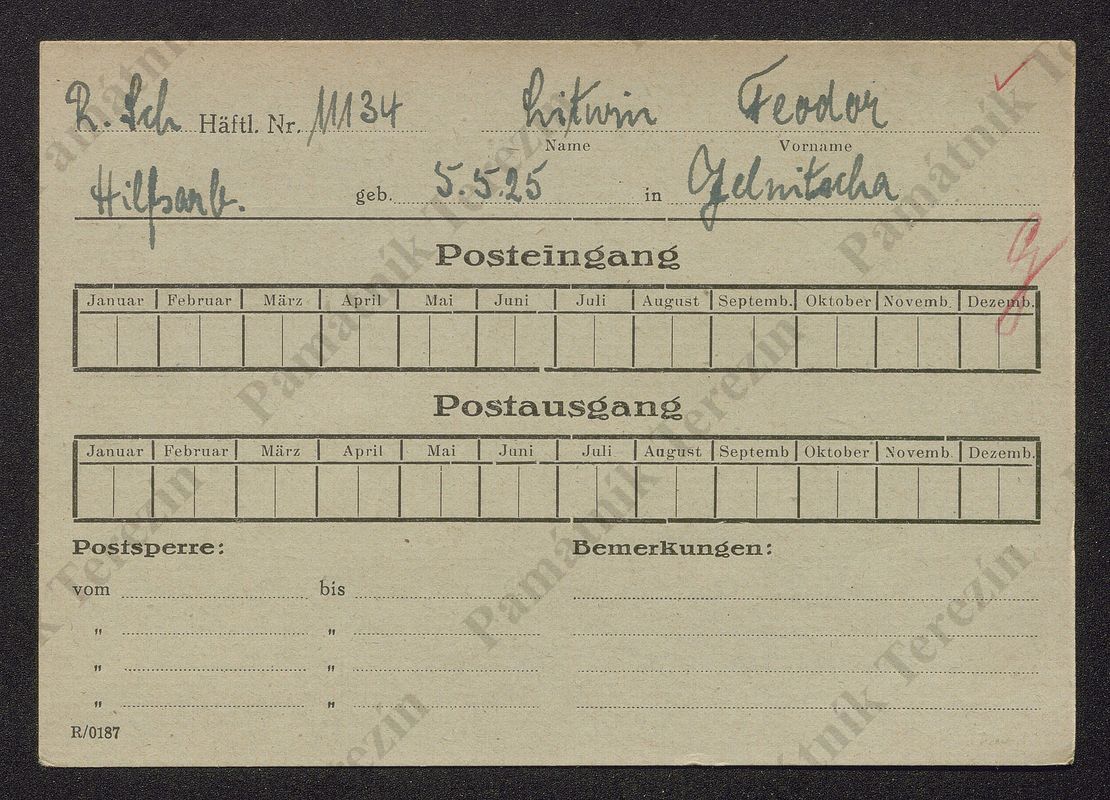 R. Sch Häftl. Nr. 11134 Litwin Feodor
Name Vorname
Hilfsarb. geb. 5.5.25 in Jelnitscha
Posteingang
Januar Februar März April Mai Juni Juli August Septemb. Oktober Novemb. Dezemb.
Postausgang
Januar Februar März April Mai Juni Juli August Septemb Oktober Novemb Dezemb.
Postsperre: Bemerkungen:
vom bis
" "
" "
" "
R/0187
Památník Terezín